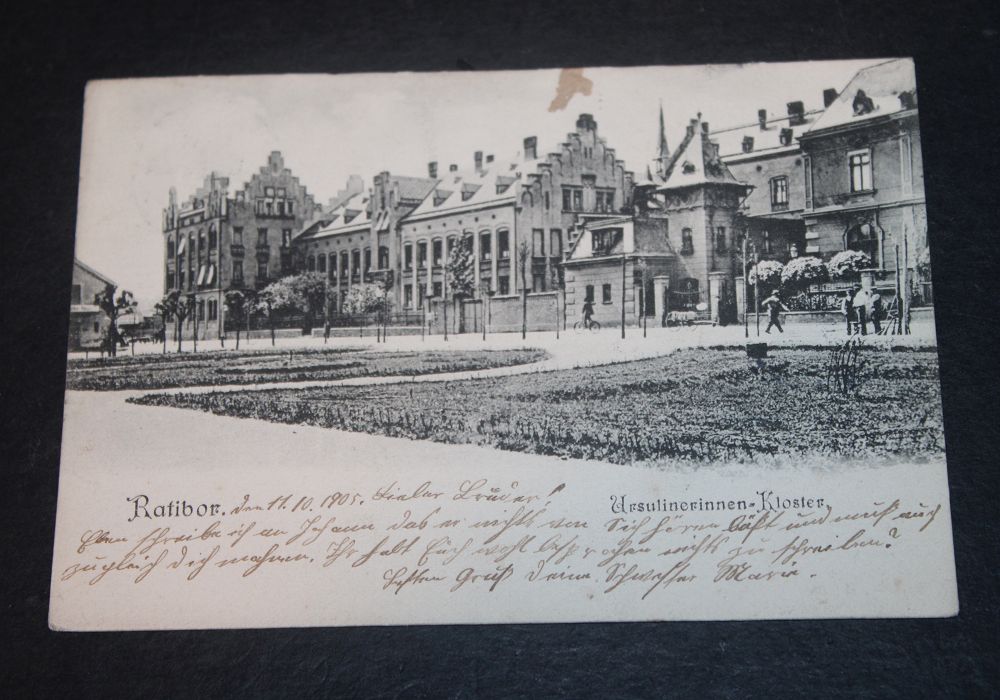 Ratibor. den 11.10.1905. Lieber Bruder! Ursulinerinnen-Kloster.
Eben schreibe ich an Johann das er nichts von Sich hören läßt und muß auch
zugleich dich mahnen. Ihr habt Euch wohl besprochen nichts zu schreiben?
Besten Gruß deine Schwester Marie.